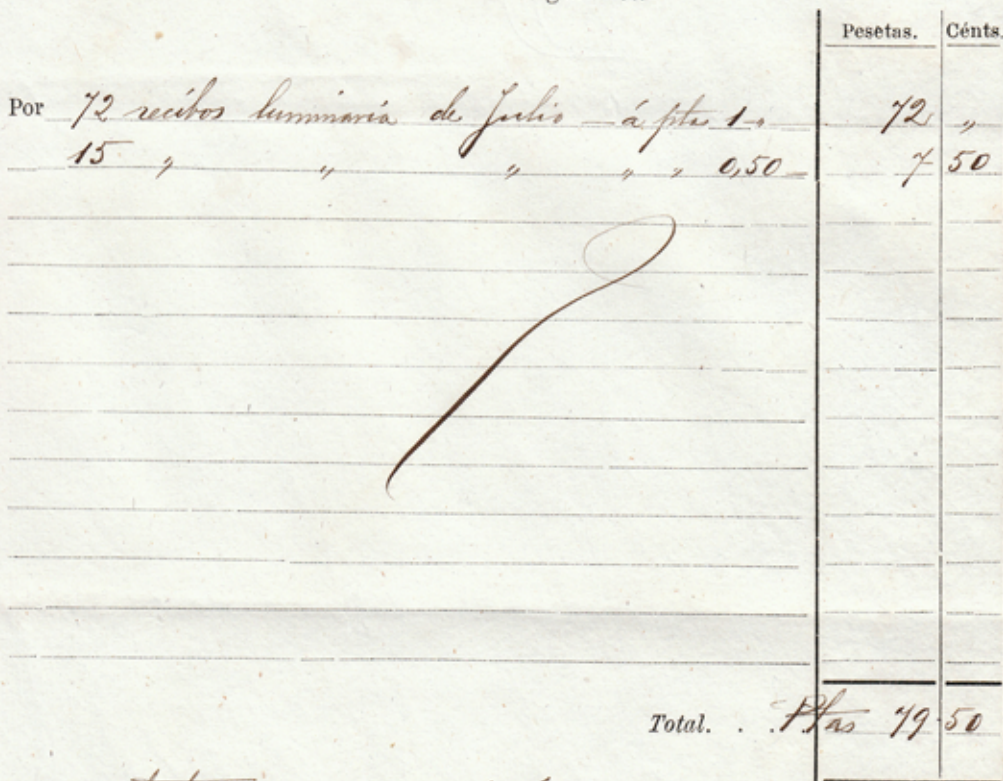 Pesetas. Cénts.
Por 72 recibos luminaria de Julio - á ptas 1 „ 72 „
15 „ „ „ „ „ 0,50 - 7 50
Total. . . Ptas 79.50